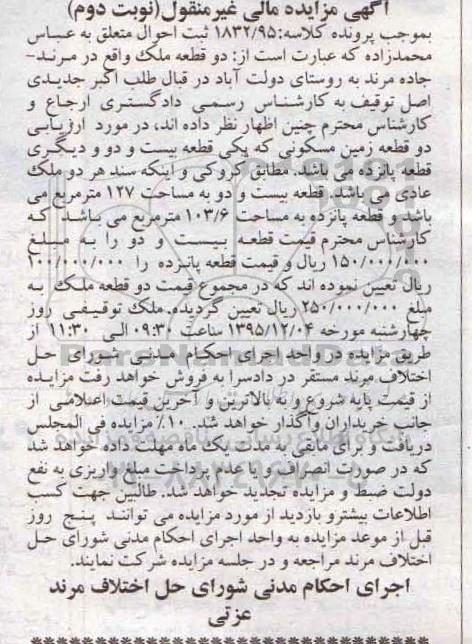 آگهی مزایده مالی غیرمنقول(نوبت دوم)
بموجب پرونده کلاسه:۱۸۳۲/۹۵ ثبت احوال متعلق به عباس
محمدزاده که عبارت است از: دو قطعه ملک واقع در مرند-
جاده مرند به روستای دولت آباد در قبال طلب اکبر جدیدی
اصل توقیف به کارشناس رسمی دادگستری ارجاع و
کارشناس محترم چنین اظهار نظر داده اند، در مورد ارزیابی
دو قطعه زمین مسکونی که یکی قطعه بیست و دو و دیگری
قطعه پانزده می باشد. مطابق کروکی و اینکه سند هر دو ملک
عادی می باشد. قطعه بیست و دو به مساحت ۱۲۷ مترمربع می
باشد و قطعه پانزده به مساحت ۱۰۳/۶ مترمربع می باشد که
کارشناس محترم قیمت قطعه بیست و دو را به مبلغ
۱۵۰/۰۰۰/۰۰۰ ریال و قیمت قطعه پانزده را ۱۰۰/۰۰۰/۰۰۰
ریال تعیین نموده اند که در مجموع قیمت دو قطعه ملک به
مبلغ ۲۵۰/۰۰۰/۰۰۰ ریال تعیین گردیده. ملک توقیفی روز
چهارشنبه مورخه ۱۳۹۵/۱۲/۰۴ ساعت ۰۹:۳۰ الی ۱۱:۳۰ از
طریق مزایده در واحد اجرای احکام مدنی شورای حل
اختلاف مرند مستقر در دادسرا به فروش خواهد رفت مزایده
از قیمت پایه شروع و به بالاترین و آخرین قیمت اعلامی از
جانب خریداران واگذار خواهد شد. ۱۰٪ مزایده فی المجلس
دریافت و برای مابقی به مدت یک ماه مهلت داده خواهد شد
که در صورت انصراف و یا عدم پرداخت مبلغ واریزی به نفع
دولت ضبط و مزایده تجدید خواهد شد. طالبین جهت کسب
اطلاعات بیشتر و بازدید از مورد مزایده می توانند پنج روز
قبل از موعد مزایده به واحد اجرای احکام مدنی شورای حل
اختلاف مرند مراجعه و در جلسه مزایده شرکت نمایند.
اجرای احکام مدنی شورای حل اختلاف مرند
عزتی